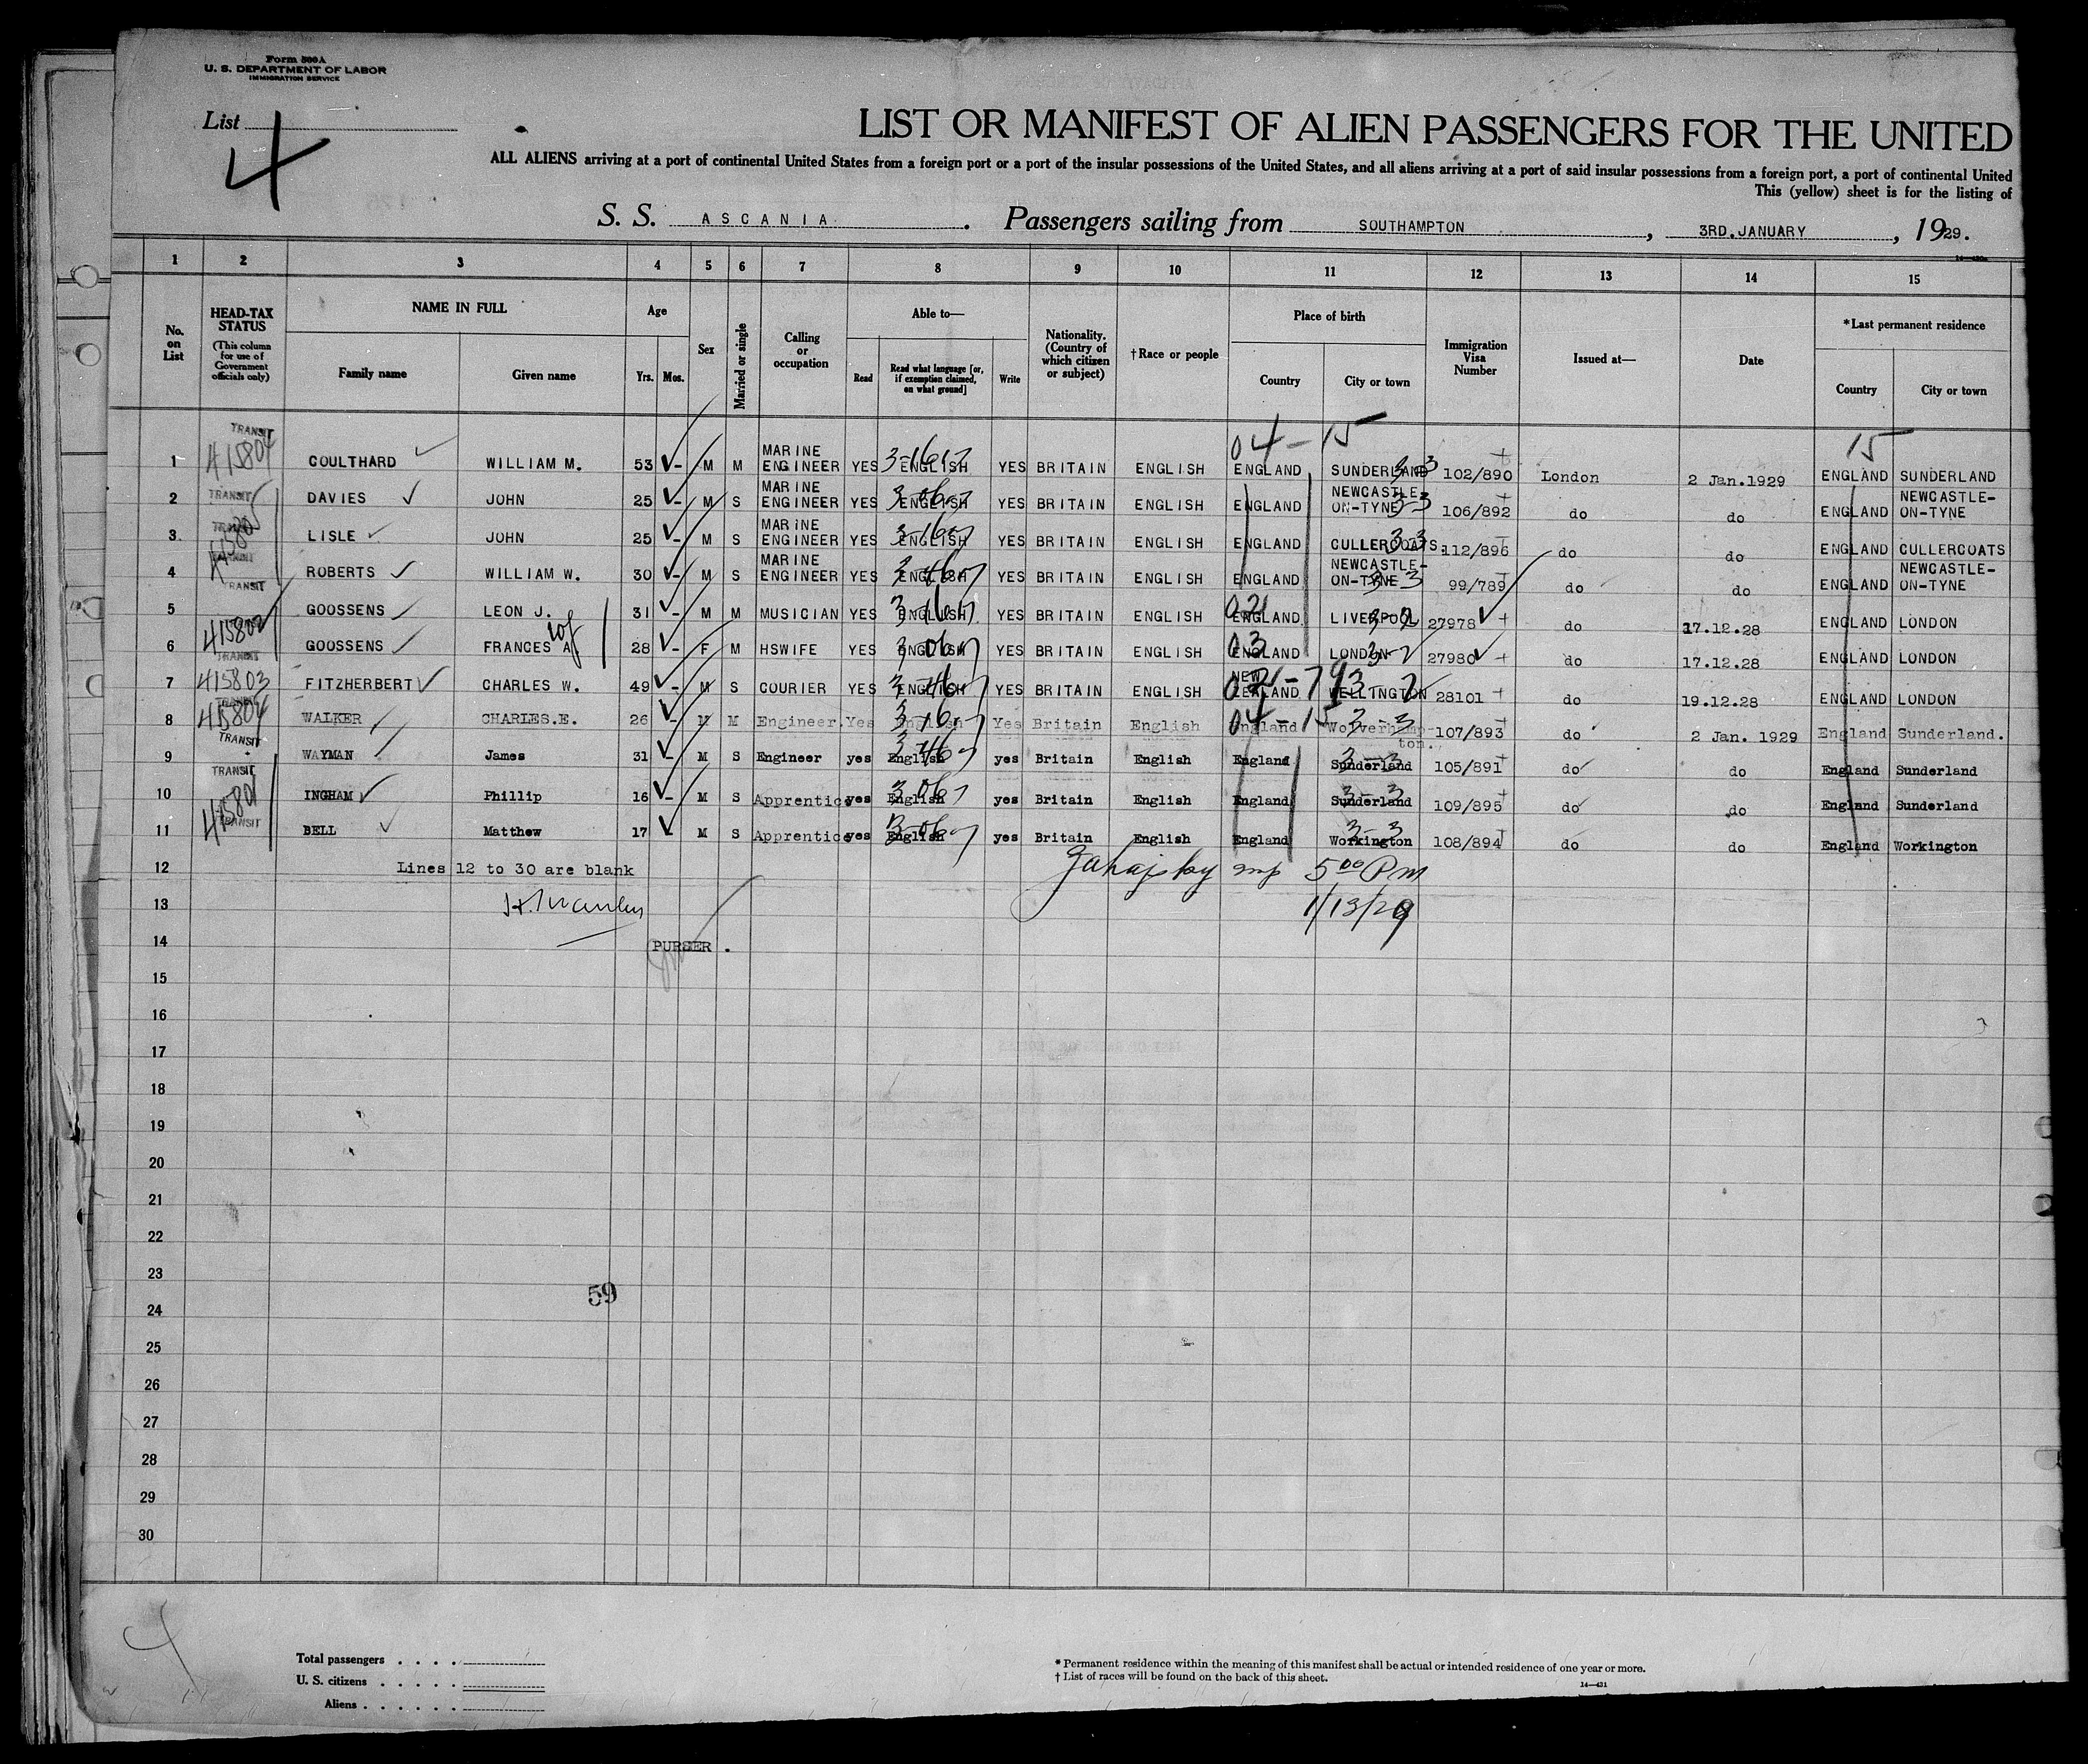 Form 500A
U. S. DEPARTMENT OF LABOR
IMMIGRATION SERVICE
List
4
LIST OR MANIFEST OF ALIEN PASSENGERS FOR THE UNITED
ALL ALIENS arriving at a port of continental United States from a foreign port or a port of the insular possessions of the United States, and all aliens arriving at a port of said insular possessions from a foreign port, a port of continental United
This (yellow) sheet is for the listing of
S. S. ASCANIA. Passengers sailing from SOUTHAMPTON, 3RD.JANUARY, 1929.
1 2 3 4 5 6 7 8 9 10 11 12 13 14 15
No. on List
HEAD-TAX STATUS (This column for use of Government officials only)
NAME IN FULL
Family name Given name
Age
Yrs. Mos.
Sex
Married or single
Calling or occupation
Able to—
Read Read what language [or, if exemption claimed, on what ground] Write
Nationality. (Country of which citizen or subject)
†Race or people
Place of birth
Country City or town
Immigration Visa Number
Issued at—
Date
*Last permanent residence
Country City or town
04-15 15
1 TRANSIT 415804 COULTHARD WILLIAM M. 53 - M M MARINE ENGINEER YES ENGLISH YES BRITAIN ENGLISH ENGLAND SUNDERLAND 102/890 London 2 Jan.1929 ENGLAND SUNDERLAND
2 TRANSIT DAVIES JOHN 25 - M S MARINE ENGINEER YES ENGLISH YES BRITAIN ENGLISH ENGLAND NEWCASTLE-ON-TYNE 106/892 do do ENGLAND NEWCASTLE-ON-TYNE
3 TRANSIT LISLE JOHN 25 - M S MARINE ENGINEER YES ENGLISH YES BRITAIN ENGLISH ENGLAND CULLERCOATS. 112/896 do do ENGLAND CULLERCOATS
4 TRANSIT ROBERTS WILLIAM W. 30 - M S MARINE ENGINEER YES ENGLISH YES BRITAIN ENGLISH ENGLAND NEWCASTLE-ON-TYNE 99/789 do do ENGLAND NEWCASTLE-ON-TYNE
5 GOOSSENS LEON J. 31 - M M MUSICIAN YES ENGLISH YES BRITAIN ENGLISH ENGLAND LIVERPOOL 27978 do 17.12.28 ENGLAND LONDON
6 415802 TRANSIT GOOSSENS FRANCES A. 28 - F M HSWIFE YES ENGLISH YES BRITAIN ENGLISH ENGLAND LONDON 27980 do 17.12.28 ENGLAND LONDON
7 415803 TRANSIT FITZHERBERT CHARLES W. 49 - M S COURIER YES ENGLISH YES BRITAIN ENGLISH NEW ZEALAND WELLINGTON 28101 do 19.12.28 ENGLAND LONDON
8 415804 WALKER CHARLES.E. 26 - M M Engineer. Yes English Yes Britain English England Wolverhampton. 107/893 do 2 Jan. 1929 England Sunderland.
9 TRANSIT WAYMAN James 31 - M S Engineer yes English yes Britain English England Sunderland 105/891 do do England Sunderland
10 TRANSIT INGHAM Phillip 16 - M S Apprentice yes English yes Britain English England Sunderland 109/895 do do England Sunderland
11 415801 TRANSIT BELL Matthew 17 M S Apprentice yes English yes Britain English England Workington 108/894 do do England Workington
12 Lines 12 to 30 are blank 5 00 PM
13 1/13/29
14 PURSER.
15
16
17
18
19
20
21
22
23
59
24
25
26
27
28
29
30
Total passengers
U. S. citizens
Aliens
* Permanent residence within the meaning of this manifest shall be actual or intended residence of one year or more.
† List of races will be found on the back of this sheet.
14—431